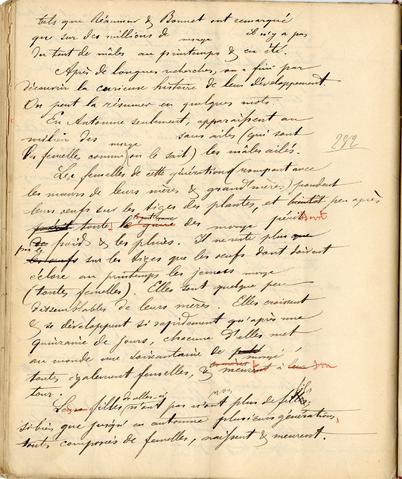 tels que Réaumur & Bonnet ont remarqué
que sur des millions de il n'y a pas
du tout de mâles au printemps & en été.
Après de longues recherches, on a fini par
découvrir la curieuse histoire de leur développement.
On peut la résumer en quelques mots.
En Automne seulement, apparaissent au
milieu des sans ailes (qui sont
des femelles, comme on le sait) les mâles ailés.
282
Les femelles de cette génération (rompant avec
les mœurs de leurs mères & grand'mères) pondent
leurs œufs sur les tiges des plantes, et bientôt peu après
toute la des périt
froids & les pluies. Il ne reste plus que
les œufs sur les tiges que les œufs dont doivent
éclore au printemps les jeunes
(toutes femelles). Elles sont quelque peu
dissemblables de leurs mères. Elles croissent
& se développent si rapidement qu'après une
quinzaine de jours, chacune d'elles met
au monde une soixantaine de
toutes également femelles, & à leur
tour.
filles n'ont pas non plus de fils,
si bien que jusqu'en automne plusieurs générations,
toutes composées de femelles, naissent & meurent.